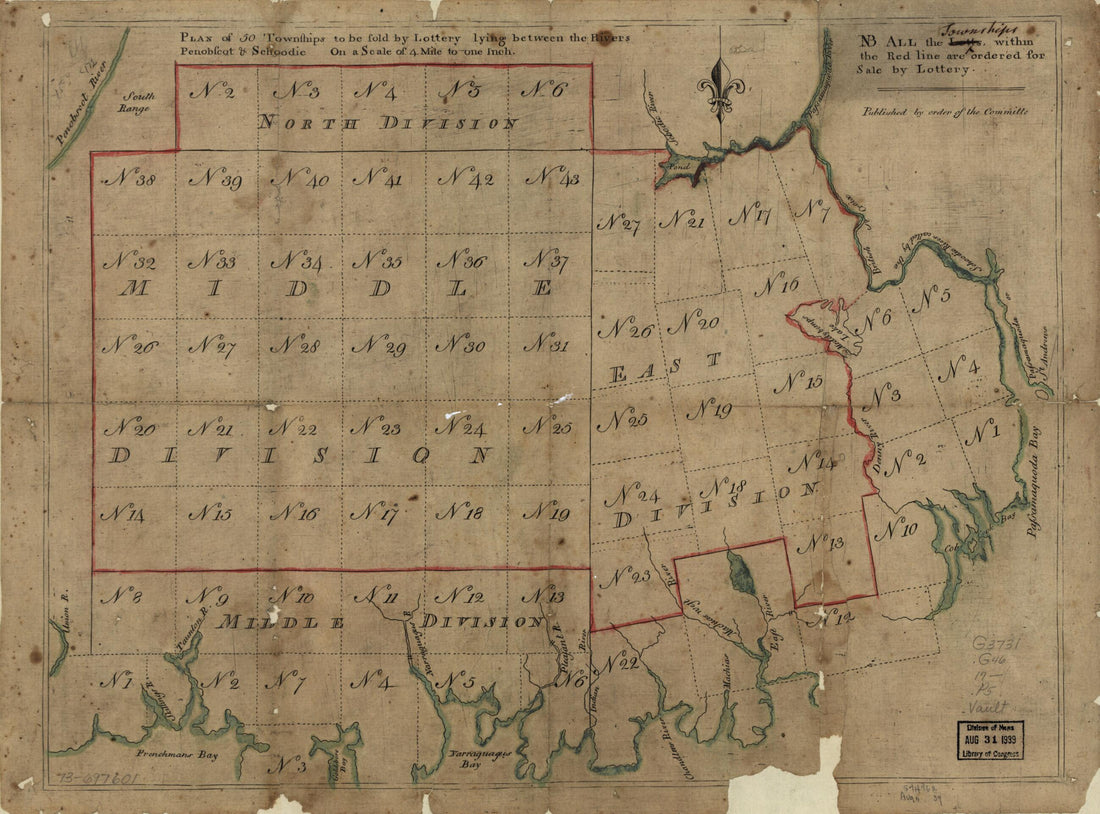 PLAN of 50 Townships to be sold by Lottery lying between the Rivers
Penobscot & Schoodie On a Scale of 4 Mile to one Inch.
Townships
NB ALL the Lotts. within
the Red line are ordered for
Sale by Lottery.
Published by order of the Committe
Penobscot River
South
Range
No 2 No 3 No 4 No 5 No 6
NORTH DIVISION
Schoodic River
Pond
No 38 No 39 No 40 No 41 No 42 No 43
No 27 No 21 No 17 No 7
No 32 No 33 No 34 No 35 No 36 No 37
MIDDLE
No 16
No 6 No 5
No 26 No 27 No 28 No 29 No 30 No 31
No 26 No 20
EAST
No 15 No 3 No 4
Passamaquoda or
St Andrews
No 20 No 21 No 22 No 23 No 24 No 25
No 25 No 19
DIVISION
Denny River
No 2 No 1
Passamaquoda Bay
No 14
No 14 No 15 No 16 No 17 No 18 No 19
No 24 No 18
DIVISION
No 13 No 10
Cobs Bay
No 23
Machias West River
East River
No 12
No 8 No 9 No 10 No 11 No 12 No 13
MILDLE DIVISION
Union R.
Taunton R.
Narraguagus R
Pleasant R
Indian River
No 1 No 2 No 7 No 4 No 5 No 6 No 22
Machias
Chandlers River
Frenchmans Bay
Goldsbro
Bay
Narraguagus
Bay
No 3
G3731
G46
19--
P5
Vault
Division of Maps
AUG 31 1939
Library of Congress
73-697601